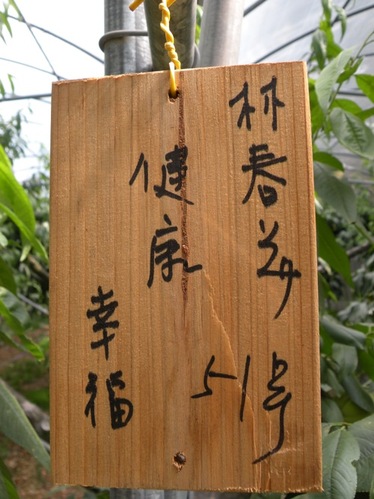 林春
51号
健康
幸福